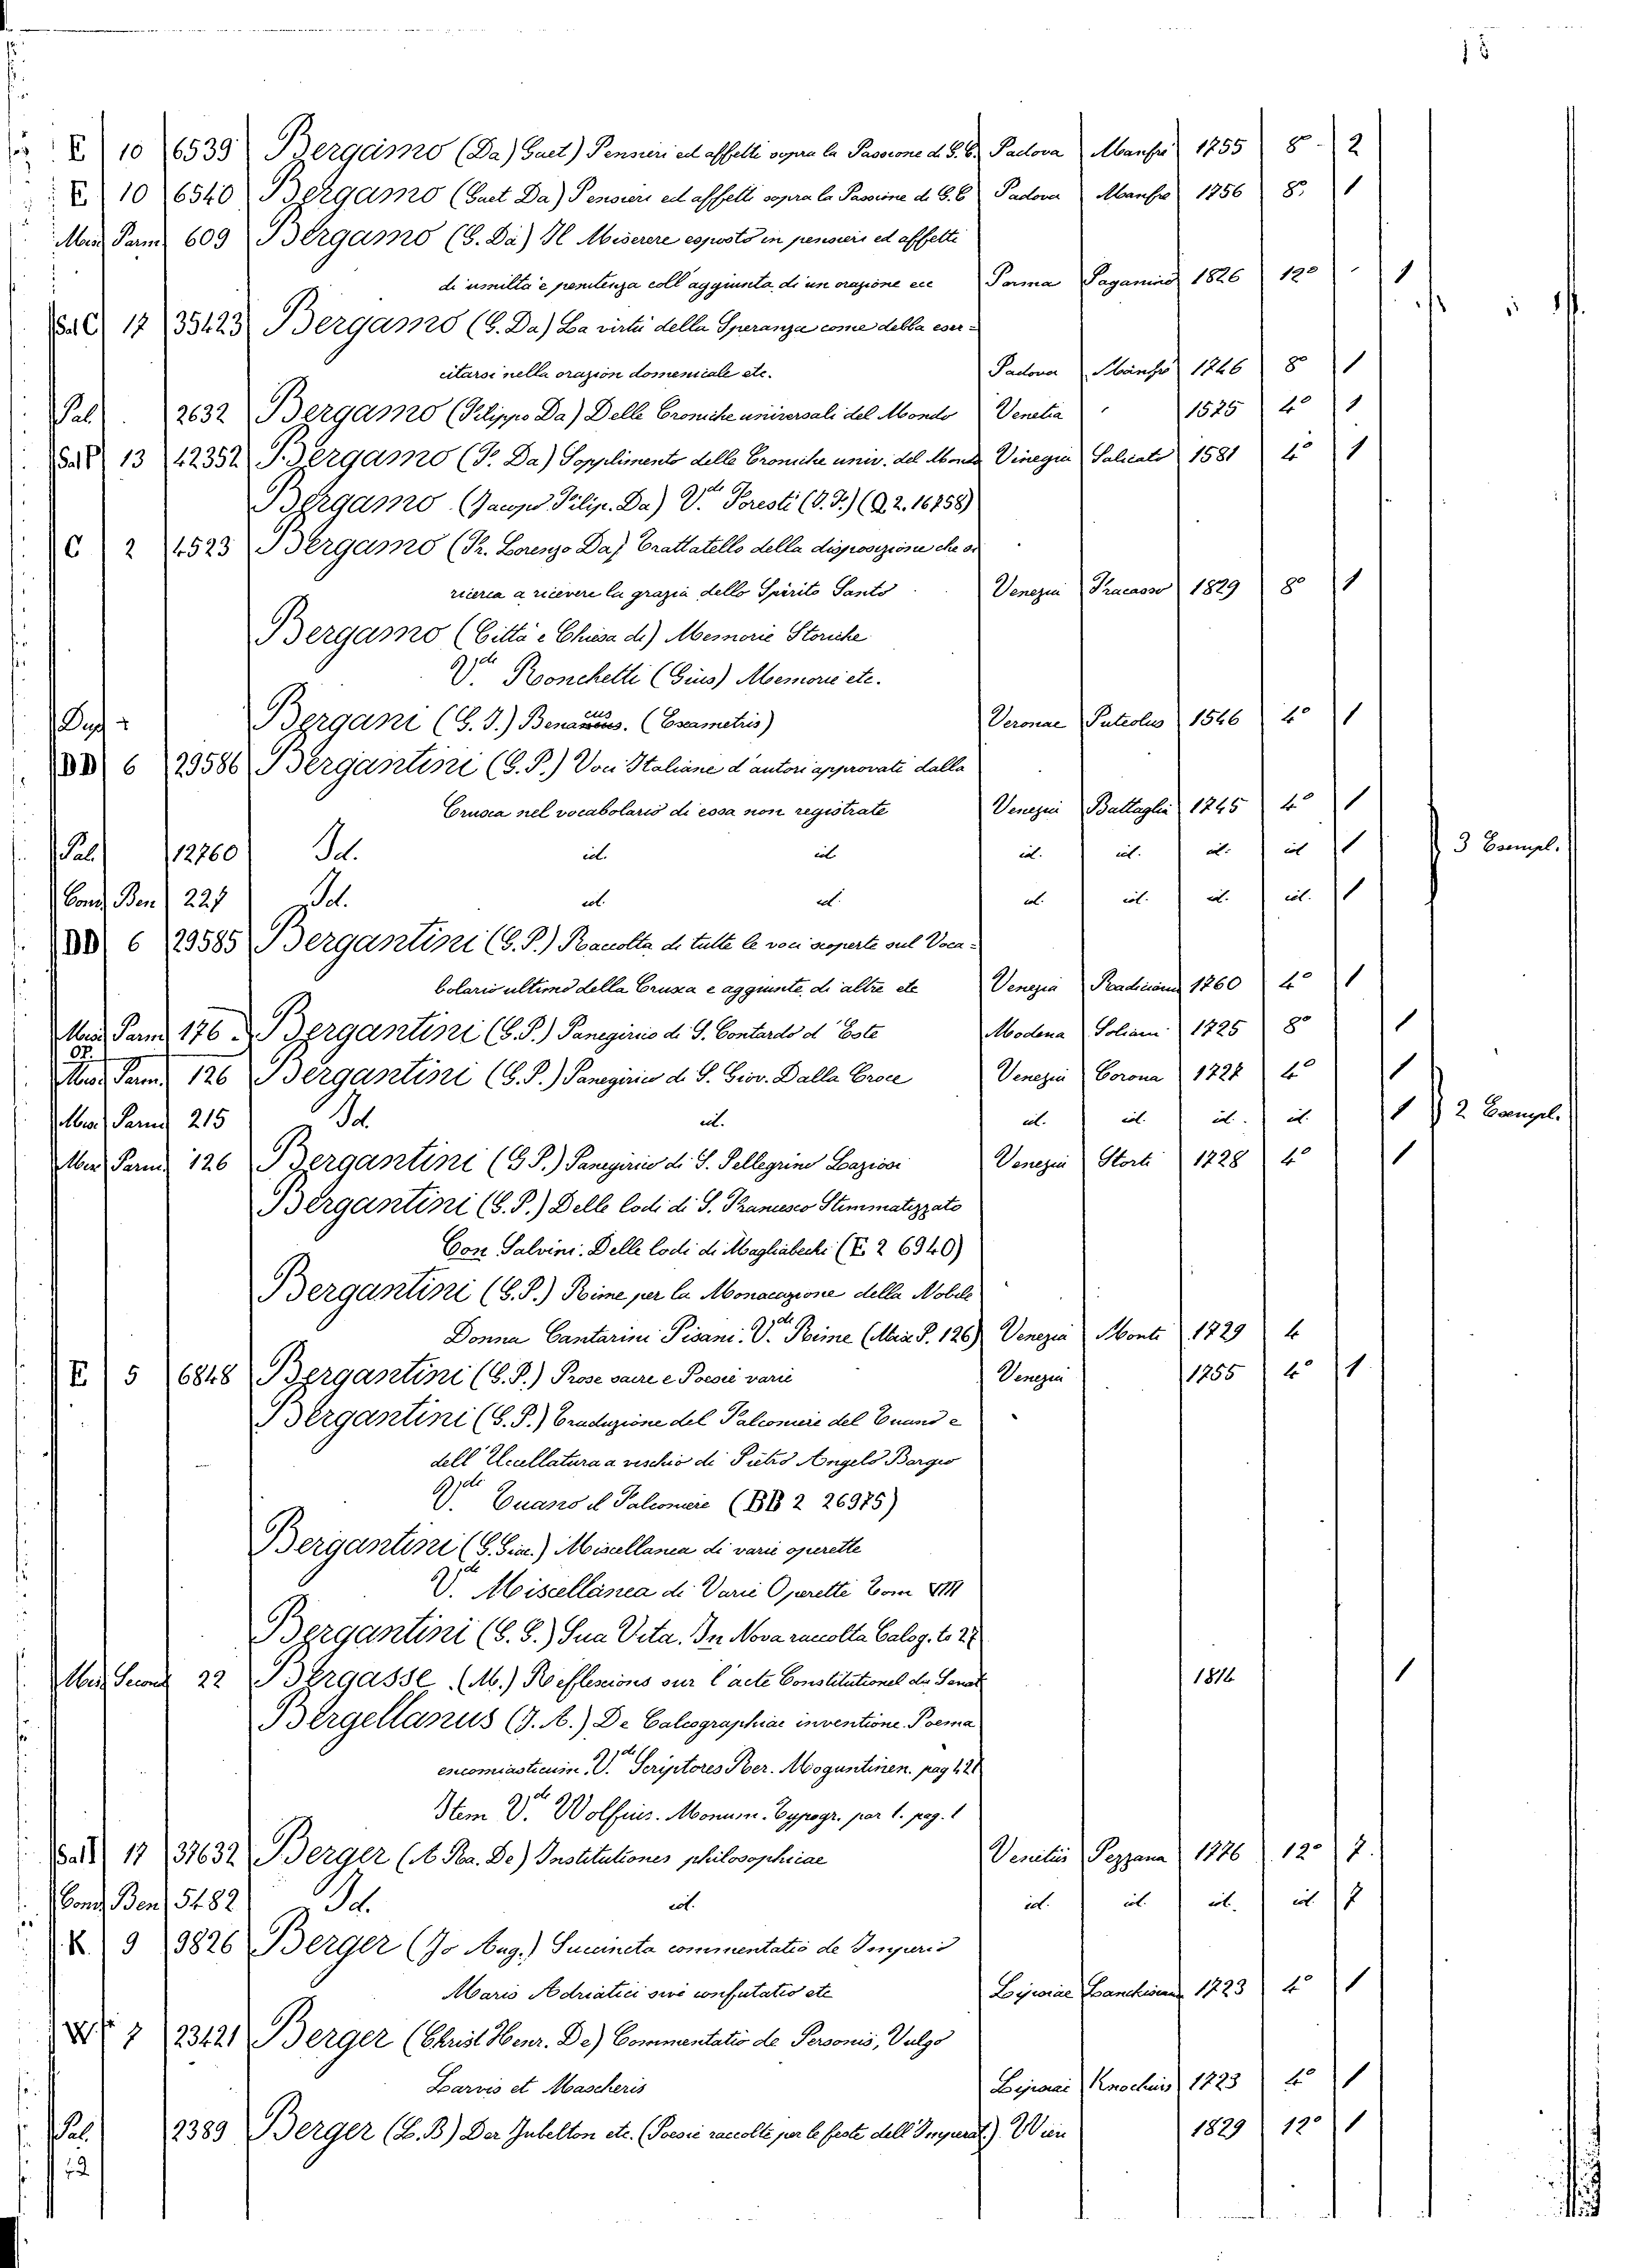 15
E 10 6539 Bergamo (Da) Gaet) Pensieri ed affetti sopra la Passione di G. C. Padova Manfrè 1755 8° 2
E 10 6540 Bergamo (Gaet Da) Pensieri ed affetti sopra la Passione di G. C Padova Manfrè 1756 8° 1
Misc Parm 609 Bergamo (G. Da) Il Miserere esposto in pensieri ed affetti
di umiltà e penitenza coll'aggiunta di un orazione ecc Parma Paganino 1826 12° 1
Sal C 17 35423 Bergamo (G. Da) La virtù della Speranza come debba eser-
citarsi nella orazion domenicale etc. Padova Manfrè 1746 8° 1
Pal 2632 Bergamo (Filippo Da) Delle Croniche universali del Mondo Venetia 1575 4° 1
Sal F 13 42352 Bergamo (F. Da) Sopplimento delle Croniche univ. del Mondo Vinegia Salicato 1581 4° 1
Bergamo (Jacopo Filip. Da) V.de Foresti (J. F.) (Q. 2. 16758)
C 2 4523 Bergamo (Fr. Lorenzo Da) Trattatello della disposizione che si
ricerca a ricevere la grazia dello Spirito Santo Venezia Fracasso 1829 8° 1
Bergamo (Città e Chiesa di) Memorie Storiche
V.de Ronchetti (Gius) Memorie etc.
Dup Bergani (G. J.) Benacus. (Exametris) Veronae Puteolus 1546 4° 1
DD 6 29586 Bergantini (G. P.) Voci Italiane d'autori approvati dalla
Crusca nel vocabolario di essa non registrate Venezia Battaglia 1745 4° 1
Pal 12760 Id. id. id. id. id. id. id. 1 3 Esempl.
Cons Ben 227 Id. id. id. id. id. id. id. 1
DD 6 29585 Bergantini (G. P.) Raccolta di tutte le voci scoperte sul Voca-
bolario ultimo della Crusca e aggiunte di altre etc Venezia Radiciana 1760 4° 1
Misc Parm 176 Bergantini (G. P.) Panegirico di S. Contardo d'Este Modena Soliani 1725 8° 1
Misc Parm. 126 Bergantini (G. P.) Panegirico di S. Giov. Dalla Croce Venezia Corona 1727 4° 1
Misc Parm 215 Id. id. id. id. id. id. 1 2 Esempl.
Misc Parm 126 Bergantini (G P.) Panegirico di S. Pellegrino Laziosi Venezia Storti 1728 4° 1
Bergantini (G. P.) Delle lodi di S. Francesco Stimmatizzato
Con Salvini. Delle lodi di Magliabechi (E. 2 6940)
Bergantini (G. P.) Rime per la Monacazione della Nobile
Donna Cantarini Pisani. V.de Rime (Misc P. 126) Venezia Monti 1729 4
E 5 6848 Bergantini (G. P.) Prose sacre e Poesie varie Venezia 1755 4° 1
Bergantini (G. P.) Traduzione del Falconiere del Tuano e
dell'Uccellatura a vischio di Pietro Angelo Bargeo
V.de Tuano il Falconiere (BB 2 26975)
Bergantini (G. Giac.) Miscellanea di varie operette
V.de Miscellanea di Varie Operette Tom VIII
Bergantini (G. G.) Sua Vita. In Nova raccolta Calog. to 27
Misc Second 22 Bergasse (M.) Reflexions sur l'acte Constitutionel du Senat 1814 1
Bergellanus (J. A.) De Calcographiae inventione. Poema
encomiasticum. V.de Scriptores Rer. Moguntinen. pag 421
Item V.de Wolfius. Monum. Typogr. par 1. pag. 1
Sal I 17 37632 Berger (A Ra. De) Institutiones philosophicae Venetiis Pezzana 1776 12° 7.
Cons Ben 5482 Id. id. id. id. id. id. 7
K. 9 9826 Berger (Jo Aug.) Succincta commentatio de Imperio
Maris Adriatici sive confutatio etc Lipsiae Lanchisiana 1723 4° 1
W 7 23421 Berger (Christ Henr. De) Commentatio de Personis, Vulgo
Larvis et Mascheris Lipsiae Knochius 1723 4° 1
Pal. 2389 Berger (L. B) Der Jubelton etc. (Poesie raccolte per le feste dell'Imperat) Wien 1829 12° 1